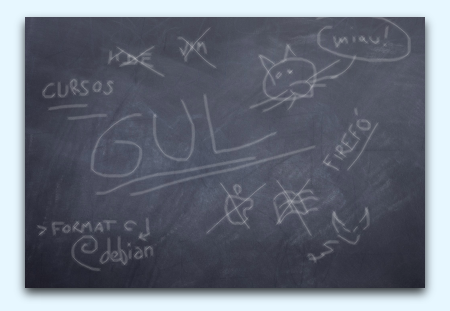 KDE
VIM
miau!
CURSOS
GUL
FIREFÓ
> FORMAT C
debian